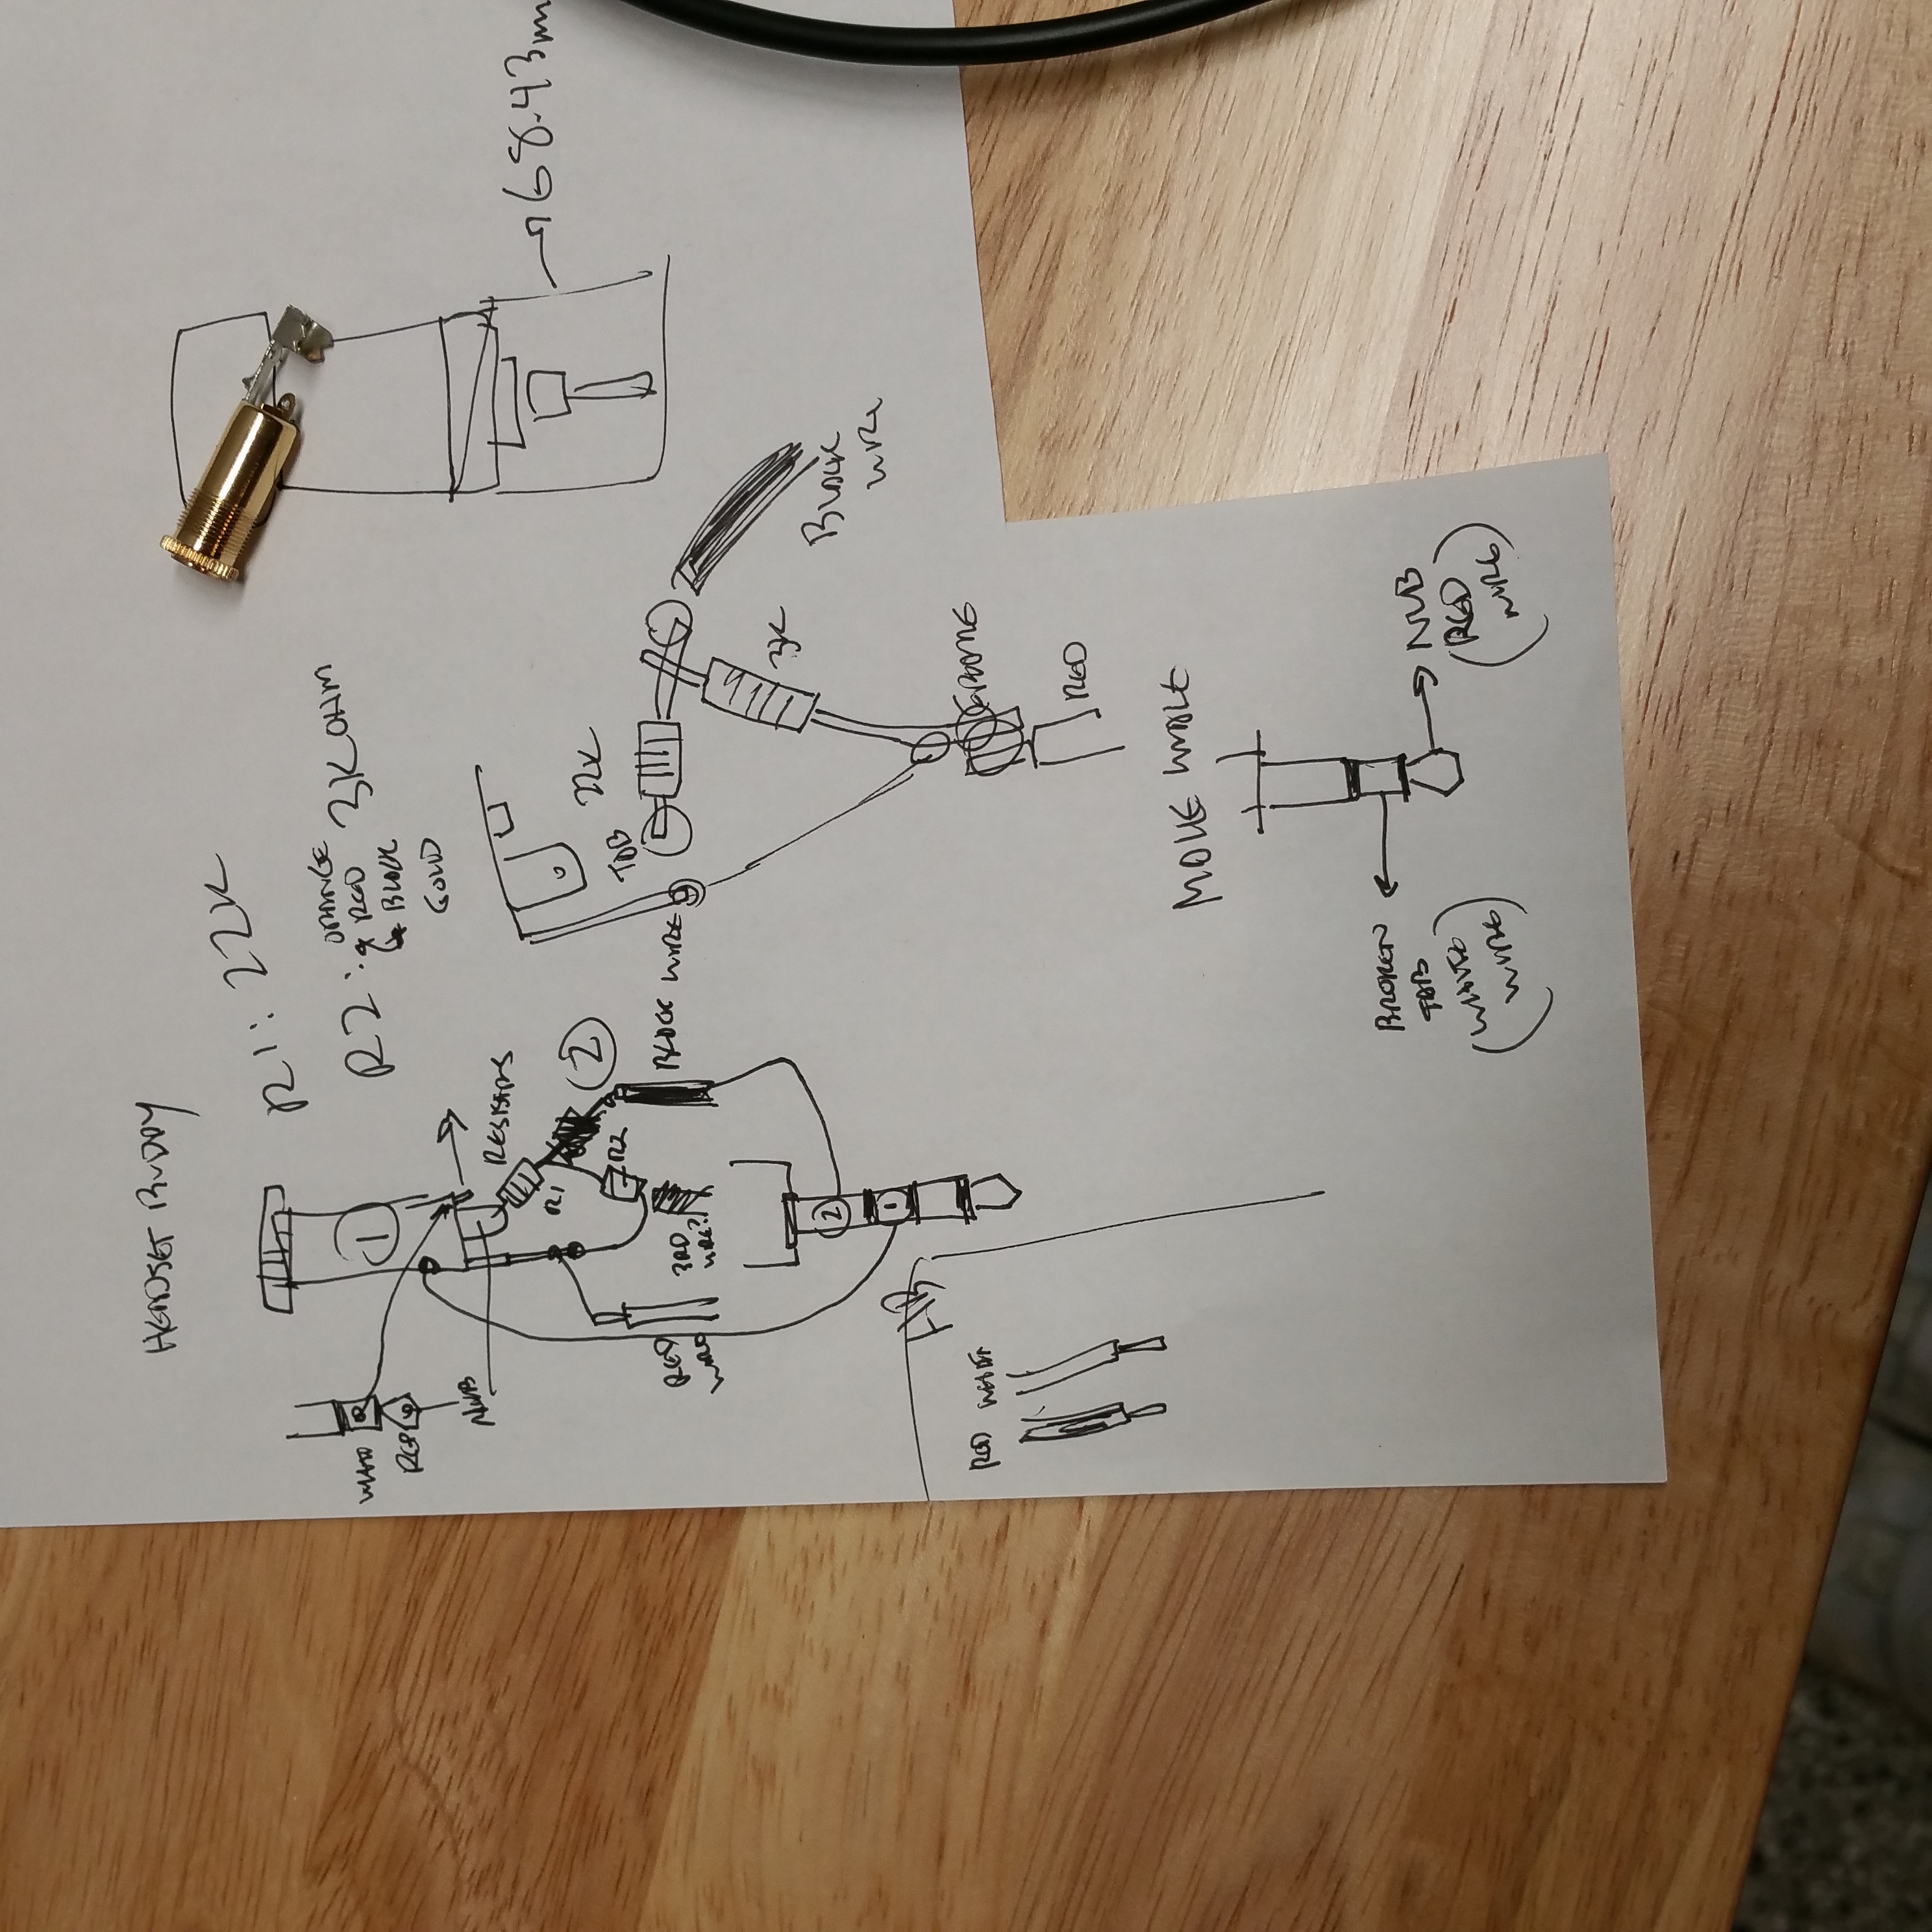 HEADSET BUDDY
R1: 22K
R2: ORANGE
RED
BLACK
GOLD
3K OHM
WHITE
RED
NUB
1
RESISTORS
R1
2
R2
RED
WIRE
3RD
WIRE?
BLACK WIRE
2
1
HB
RED WHITE
TAB
22K
3K
BLACK
WIRE
RED
68.43mm
MALE WHALE
BROKEN
TAB
(WHITE
WIRE)
NUB
(RED
WIRE)